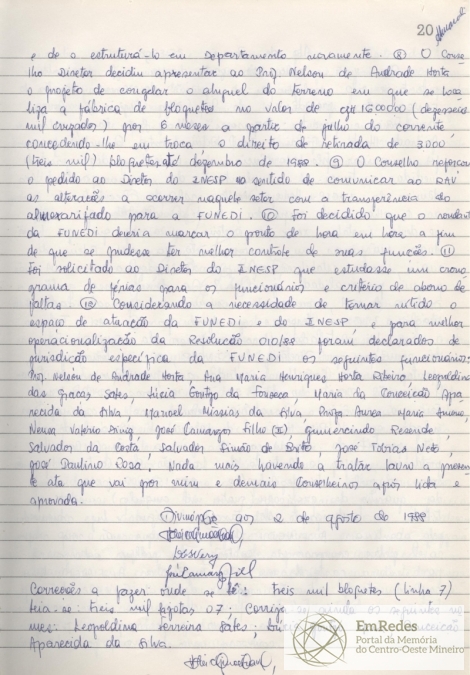 20
e de o estruturá-lo em Departamento novamente. (8) O Conse
lho Diretor decidiu apresentar ao Prof. Nelson de Andrade Horta
o projeto de congelar o aluguel do terreno em que se loca
liza a fábrica de bloquetes no valor de cz$ 16.000,00 (dezesseis
mil cruzados) por 6 meses a partir de julho do corrente,
concedendo-lhe em troca, o direito de retirada de 3000
(treis mil) bloquetes até dezembro de 1988. (9) O Conselho reforçou
o pedido ao Diretor do INESP no sentido de comunicar ao
as alterações a ocorrer naquele setor com a transferência do
almoxarifado para a FUNEDI. (10) Foi decidido que o
da FUNEDI deveria marcar o ponto de hora em hora a fim
de que se pudesse ter melhor controle de suas funções. (11)
Foi solicitado ao Diretor do INESP que estudasse um crono
grama de férias para os funcionários e critério de abono de
faltas. (12) Considerando a necessidade de tornar nítido o
espaço de atuação da FUNEDI e do INESP, e para melhor
operacionalização da Resolução 010/88 foram declarados de
jurisdição específica da FUNEDI os seguintes funcionários:
Prof. Nelson de Andrade Horta, Ana Maria Henriques Horta Ribeiro, Leopoldina
das Graças Sales, Lúcia Gontijo da Fonseca, Maria da Conceição Apa
recida da Silva, Manoel Missias da Silva, Profa Aurea Maria
Neusa Valério José Camargos Filho (II), Gumercindo Resende,
Salvador da Costa, Salvador Simão de Brito, José Tobias Neto,
José Paulino Rosa, Nada mais havendo a tratar lavro a presen
te ata que vai por mim e demais Conselheiros após lida e
aprovada.
Divinópolis aos 2 de agosto de 1988
Correções a fazer onde se lê: treis mil bloquetes (linha 7)
leia-se: treis mil 07; Corrige se ainda os seguintes no
mes: Leopoldina Ferreira Sales; Conceição
Aparecida da Silva.
EmRedes
Portal da Memória
do Centro-Oeste Mineiro